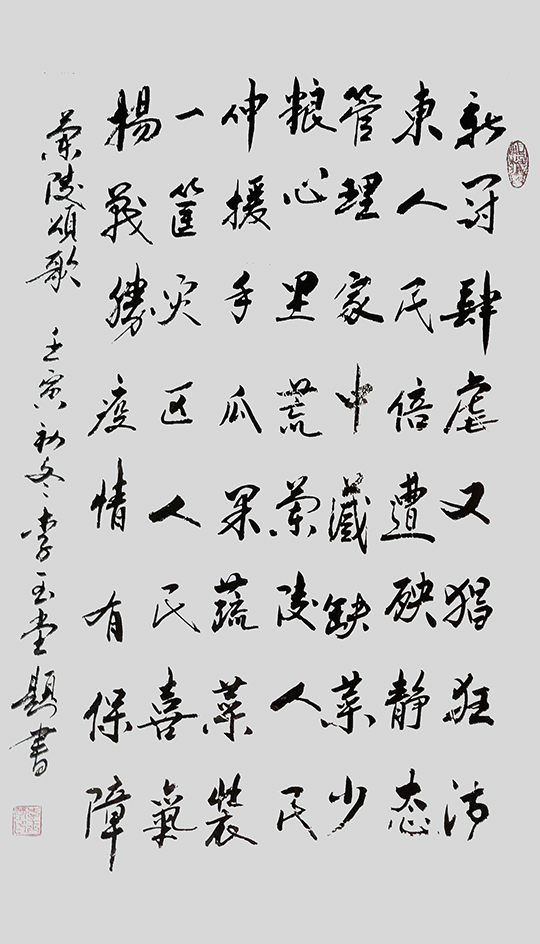 新冠肆虐又猖狂沪
東人民倍遭殃静态
管理家中藏缺菜少
粮心里荒蘭陵人民
伸援手瓜果蔬菜裝
一筐灾区人民喜氣
揚戰勝疫情有保障
蘭陵頌歌 壬寅初冬李玉堂題書